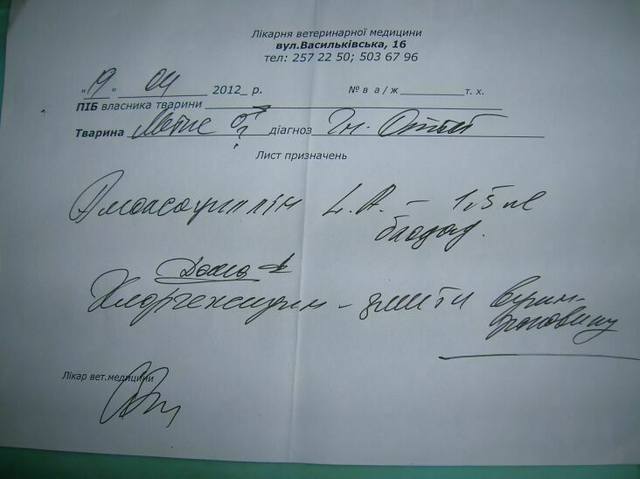 Лікарня ветеринарної медицини
вул.Васильківська, 16
тел: 257 22 50; 503 67 96
"19" 04 2012_ р. № в а/ж т. х.
ПІБ власника тварини
Тварина Метис ♂ діагноз Гн. Отит
?
Лист призначень
Амоксациллін L.A. – 1,5 мл
Дома
Хлоргексидин – змити
Лікар вет.медицини